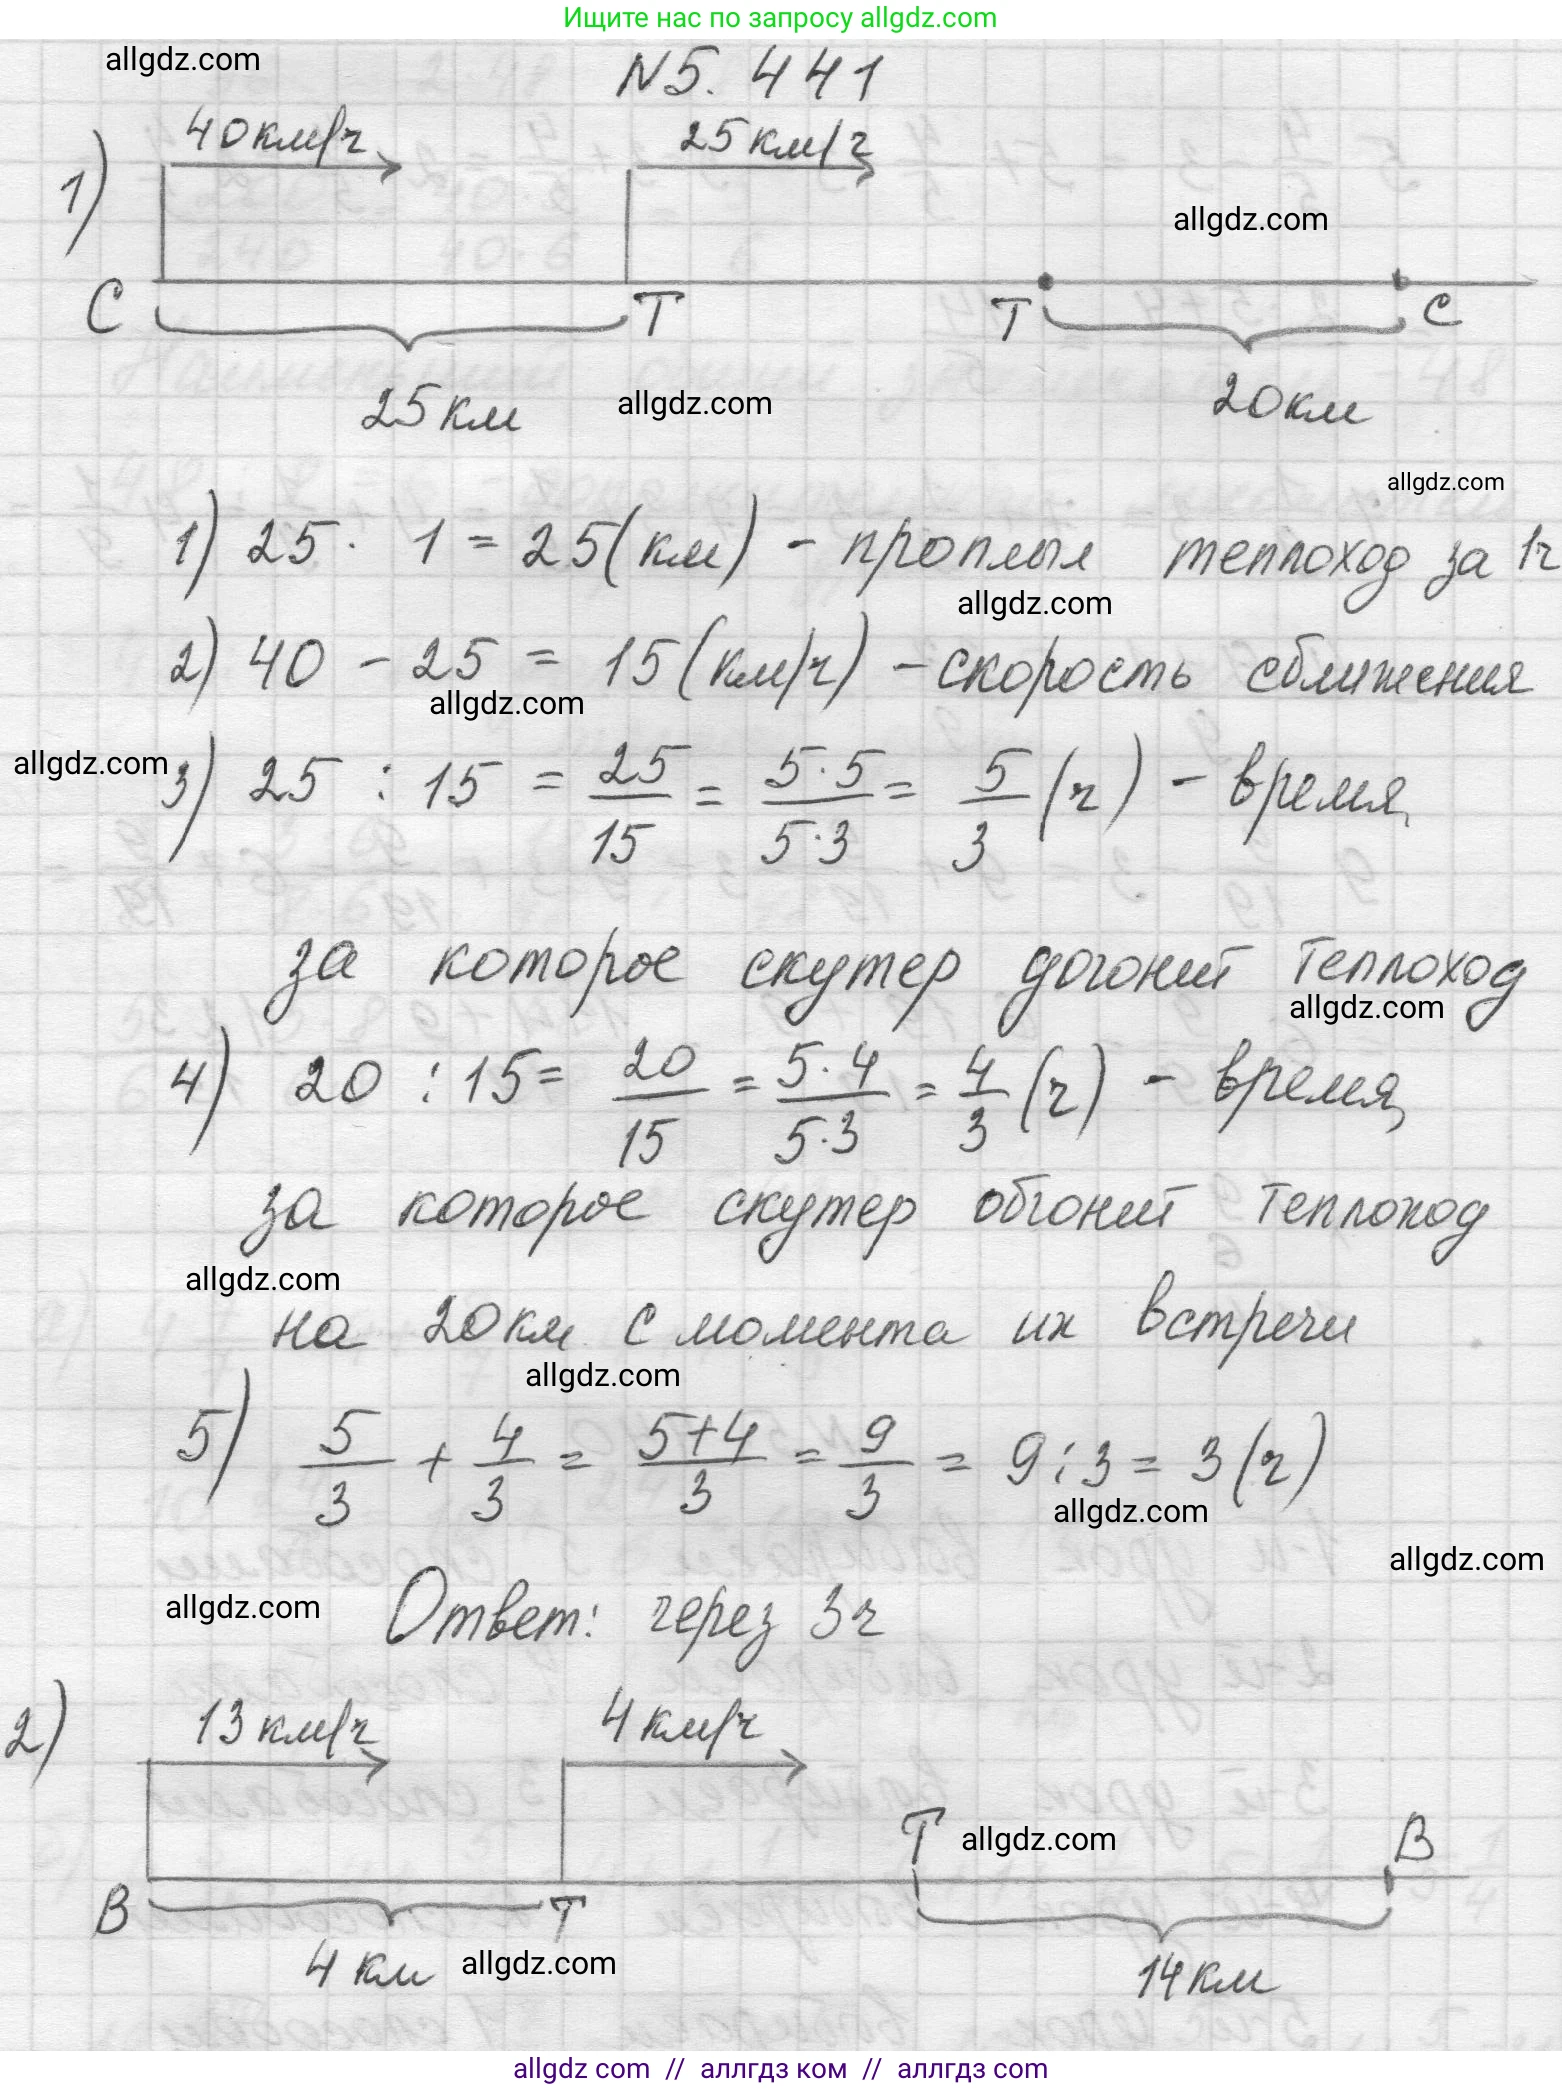 Ищите нас по запросу allgdz.com
allgdz.com
N5.441
1) 40км/ч 25км/ч
allgdz.com
С Т Т С
25 км allgdz.com 20км
allgdz.com
1) 25 · 1 = 25(км) - проплыл теплоход за 1ч
allgdz.com
2) 40 - 25 = 15(км/ч) - скорость сближения
allgdz.com
allgdz.com
3) 25 : 15 = 25/15 = 5·5/5·3 = 5/3 (ч) - время,
за которое скутер догонит теплоход
allgdz.com
4) 20 : 15 = 20/15 = 5·4/5·3 = 4/3 (ч) - время,
за которое скутер обгонит теплоход
allgdz.com
на 20км с момента их встречи
allgdz.com
5) 5/3 + 4/3 = 5+4/3 = 9/3 = 9:3 = 3 (ч)
allgdz.com
allgdz.com
allgdz.com
Ответ: через 3ч
2) 13 км/ч 4 км/ч
Т allgdz.com В
В Т
4 км allgdz.com 14км
allgdz.com // аллгдз ком // аллгдз.com